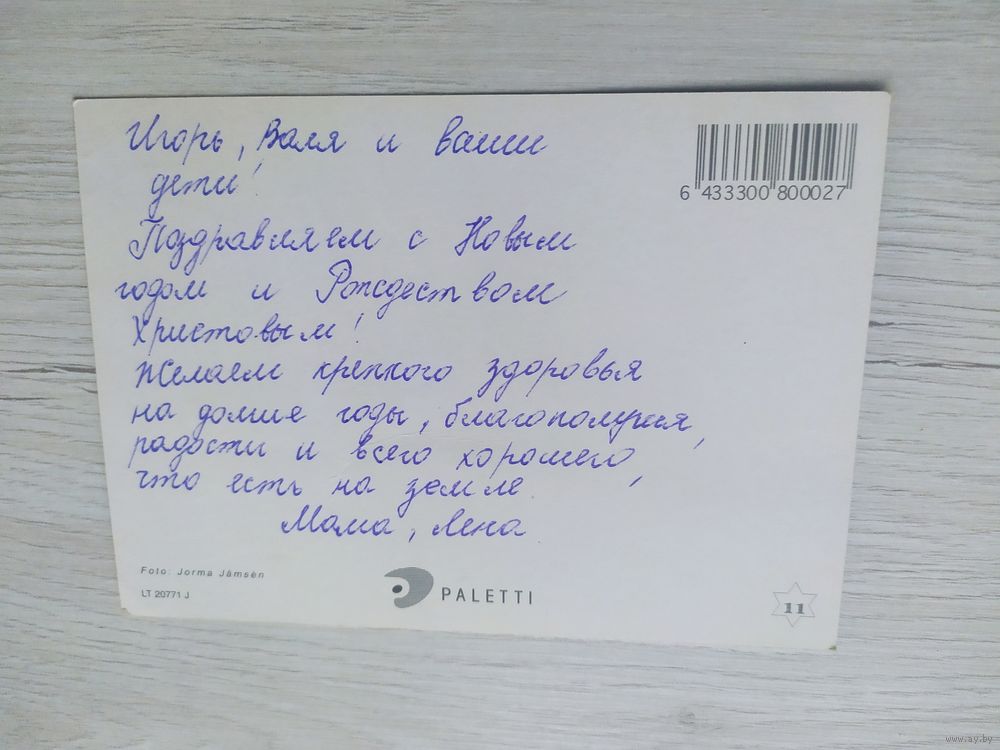 Игорь, Валя и ваши
дети!
Поздравляем с Новым
годом и Рождеством
Христовым!
Желаем крепкого здоровья
на долгие годы, благополучия,
радости и всего хорошего,
что есть на земле.
Мама, Лена
6 433300 800027
Foto: Jorma Jämsèn
LT 20771 J
PALETTI
11
www.ay.by